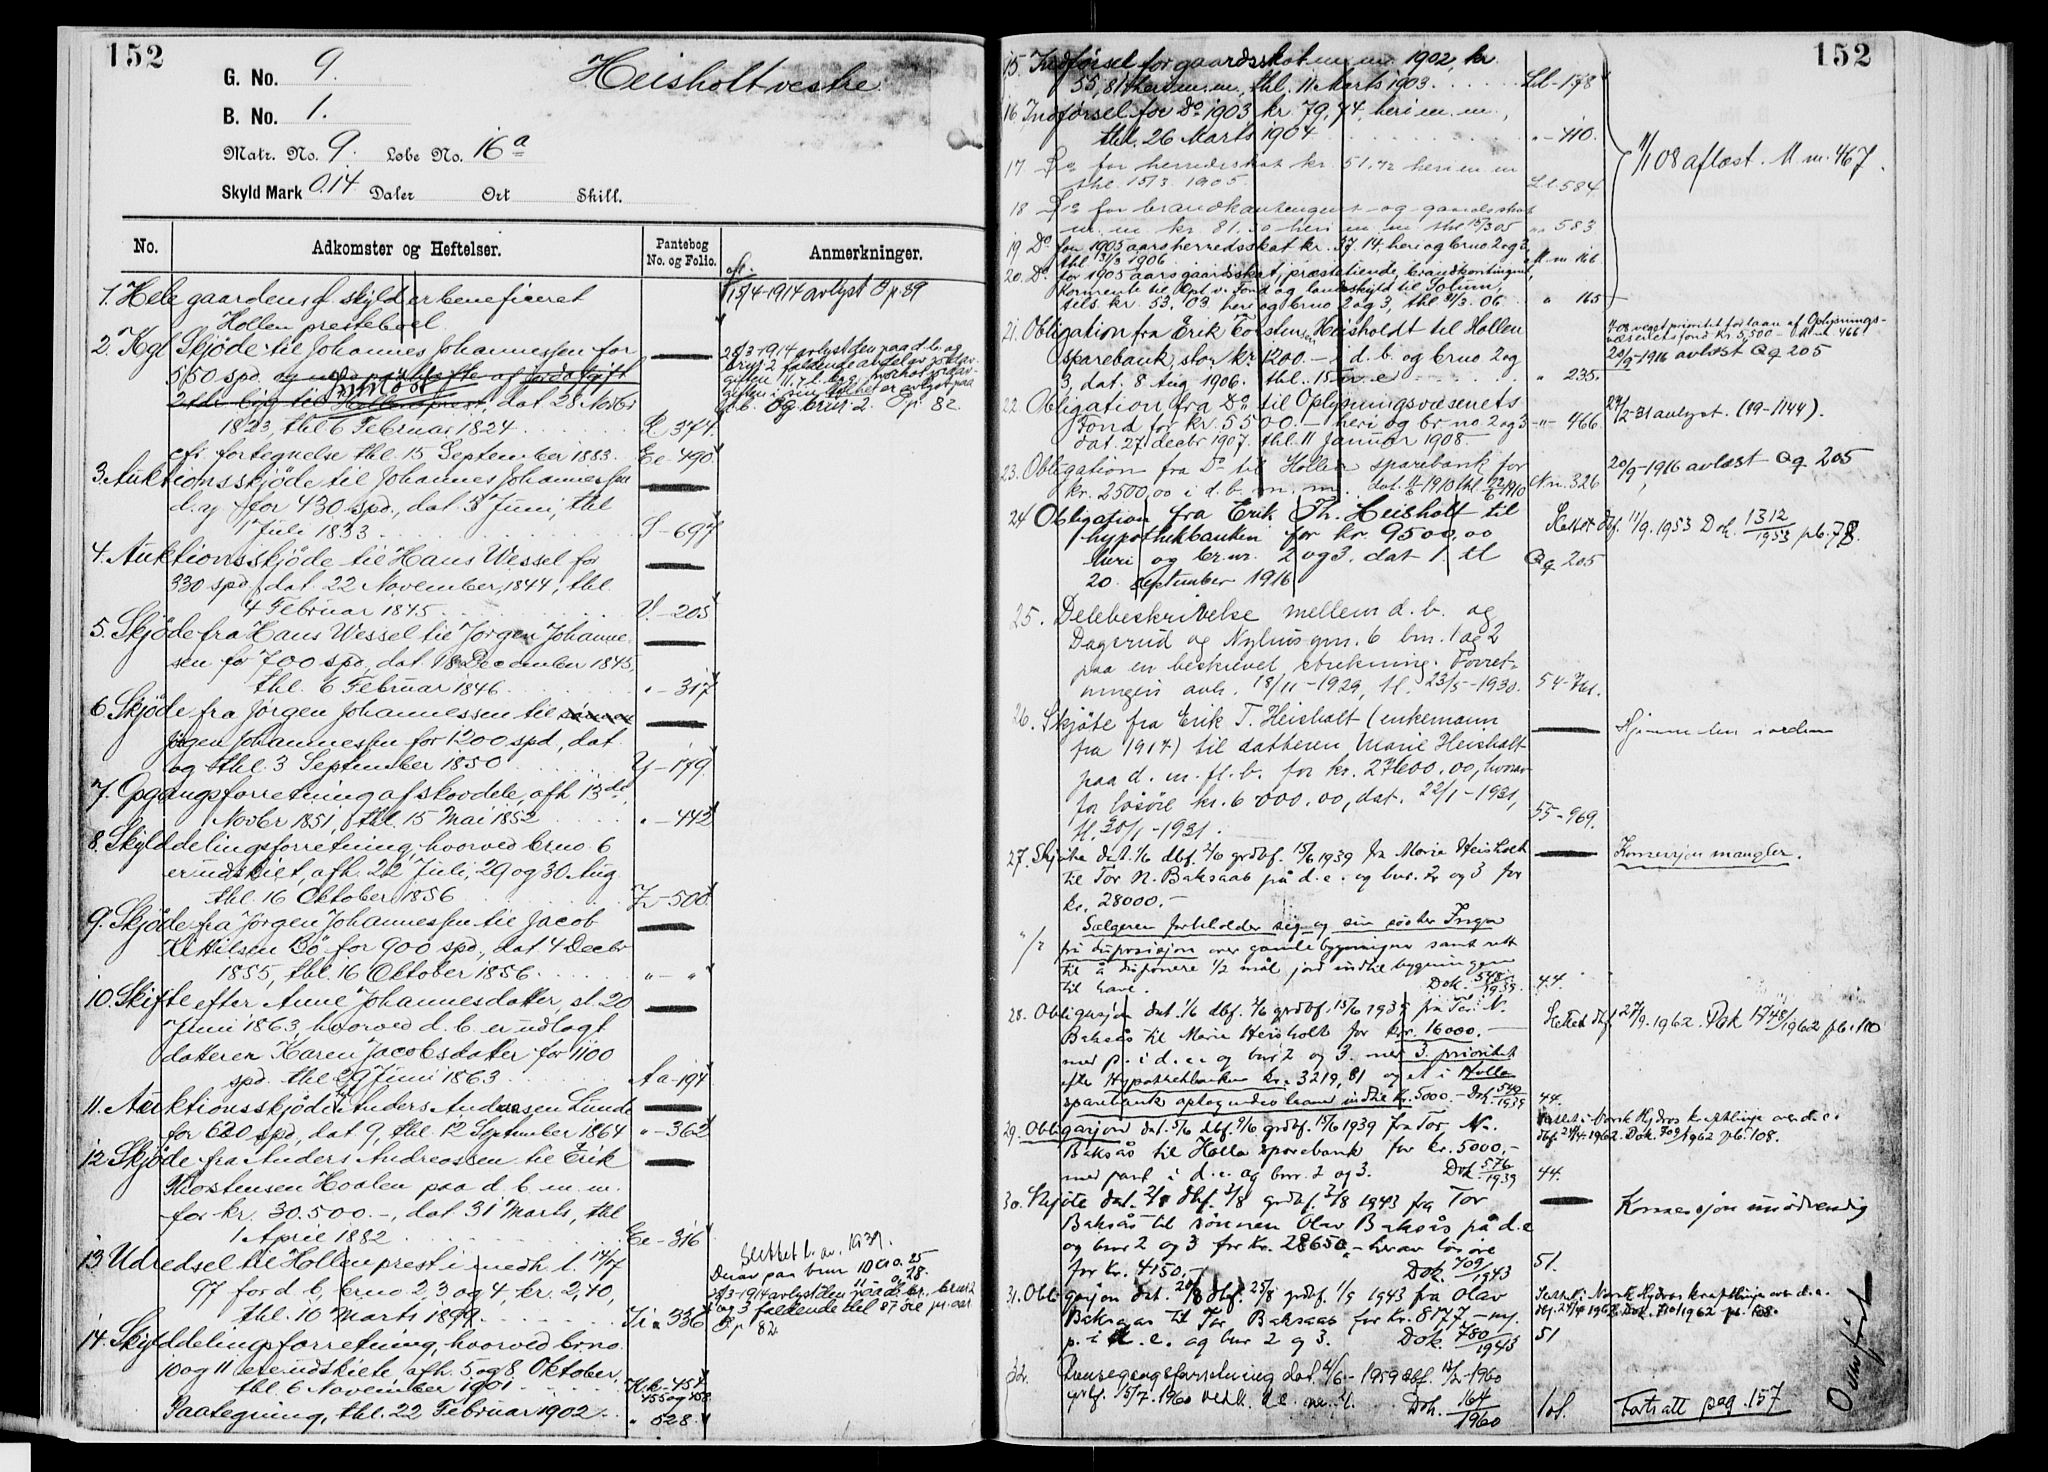 152
G. No. 9.
Heisholt vestre
B. No. 1.
Matr. No. 9. Løbe No. 16a
Skyld Mark 0.14 Daler Ort Skill.
No.
Adkomster og Heftelser.
Pantebog
No. og Folio.
Anmerkninger.
1. Hele gaardens skyld er beneficeret
Hollen presteboel
15/4-1914 avlyst B p 89
2. Kgl Skjøde til Johannes Johannessen for
550 spd og mod
dat 28 Novbr
1823, thl 6 Februar 1824 R. 374.
cfr fortegnelse thl. 15 September 1883. Ee-490
25/3-1914 avlyst den paa d. b. og
og brnr. 2. B p. 82.
3. Auktionsskjøde til Johannes Johannessen
d. y for 430 spd., dat. 3 Juni, thl
1 Juli 1833 S-697
4. Auktionsskjøde til Hans Wessel for
330 spd, dat. 22 November, 1844, thl.
4 Februar 1845 V.-205
5. Skjøde fra Hans Wessel til Jørgen Johanne-
sen for 700 spd, dat. 18 December 1845,
thl. 6 Februar 1846 "-317
6. Skjøde fra Jørgen Johannessen til sønnen
Jørgen Johannessen for 1200 spd, dat.
og thl. 3 September 1850 Y-179
7. Opgangsforretning af skovdele, afh 13de
Novbr 1851, thl. 15 Mai 1852 "-442
8. Skylddelingsforretning, hvorved brno 6
er udskiet, afh. 22 Juli, 29 og 30 Aug
thl. 16 Oktober 1856 Z-500
9. Skjøde fra Jørgen Johannessen til Jacob
Kittilsen Bø for 900 spd, dat 4 Decbr
1855, thl. 16 Oktober 1856 "-"
10. Skifte efter Anne Johannesdatter, sl. 20
Juni 1863, hvorved d. b. er udlagt
datteren Karen Jacobsdatter for 1100
spd. thl 29 Juni 1863 Aa-194
11. Auktionsskjøde til Anders Andreasen Lunde
for 620 spd, dat. 9, thl. 12 September 1864 "-362
12. Skjøde fra Anders Andreassen til Erik
Thorstensen Haalen paa d. b. m. m.
for kr. 30.500.-, dat. 31 Marts, thl
1 April 1882 Ee-316
13. Udredsel til Hollen prest i medh. l. 14/7
97 for d. b, brno 2, 3 og 4, kr. 2,40,
thl. 10 Marts 1899 Ii-336
Slettet
Derav paa brnr 10
25/3-1914 avlyst den paa d. br., brnr 2
og 3 faldende del 87 øre pr. aar
B p 82
14. Skylddelingsforretning, hvorved brno.
10 og 11 ere udskiete, afh. 5 og 8 Oktober,
thl. 6 November 1901 Kk-454
455 og 458
Paategning, thl. 22 Februar 1902. "-528
152
15. Indførsel for gaardsskat m m. 1902, kr.
55,81 heri m. m, thl. 11 Marts 1903 Ll-178
16. Indførsel for Do 1903 kr. 79,74, heri m. m.,
thl. 26 Marts 1904 "-410.
17. Do for herredsskat kr. 51.72 heri m m
thl. 15/3 1905. Ll 584
18. Do for brandkontengent og gaardsskat
m. m. kr. 81.50 heri m. m. thl 15/3 05 " 583
19 Do for 1905 aars herredsskat kr. 37.14. heri og brno 2 og 3,
thl 31/3 1906 Mm 166
20. Do for 1905 aars gaardsskat, præstetiende, brandkontingent,
kornrente til Opl. v. Fond og landskyld til Solum,
tils. kr. 53.03 heri og brno 2 og 3, thl 31/3. 06. " 165
11/1 08 aflæst. M m. 467.
21. Obligation fra Erik Torstensen Heisholdt til Hollen
sparebank stor kr. 1200.- i d. b. og brno 2 og
3, dat. 8 Aug 1906. thl. 15 " 235.
7 08 veget prioritet for laan af Oplysnings-
væsenets fond kr. 5,500 - M m 466
20/9-1916 avlæst Qq 205
22. Obligation fra Do til Oplysningsvæsenets
Fond for kr. 5500.- heri og br no 2 og 3 -"- 466.
dat. 27 decbr 1907. thl. 11 Januar 1908.
24/2-31 avlyst. (99-1144).
23. Obligation fra Do til Hollen sparebank for
kr. 2500,00 i d. b. m. m. Nn. 326
20/9-1916 avlæst Qq 205
24 Obligation fra Erik Th. Heisholt til
hypothekbanken for kr. 9500,00
heri og br.nr. 2 og 3. dat 1. tl Qq 205
20. september 1916
Slettet dbf. 11/9. 1953 Dok. 1312/1953 pb. 78.
25. Delebeskrivelse mellem d. b. og
Dagsrud og Nyhus gnr. 6 bnr. 1 og 2
paa en beskrevet strekning. Forret-
ningen avh. 18/11-1929, tl. 23/5-1930. 54-
26. Skjøte fra Erik T. Heisholt (enkemann
fra 1917) til datteren Marie Heisholt
paa d. m. fl. b. for kr. 27600.00, hvorav
for løsøre kr. 6000.00, dat. 22/1-1931,
tl. 30/1-1931. 55-969.
Hjemmelen i orden
27. Skjøte dat. 1/6 dbf. 2/6 grdbf. 15/6 1939 fra Marie Heisholt
til Tor N. Baksaas på d. e. og bnr. 2 og 3 for
kr. 28000.-
Konsesjon mangler.
Sælgeren forbeholder sig og sin søster Inga
fri disposisjon over gamlebygningen samt rett
til å disponere 1/2 mål jord indtil bygningen
til have. Dok. 548/1939. 44.
28. Obligasjon dat. 1/6 dbf. 2/6 grdbf. 15/6 1939 fra Tor N.
Baksås til Marie Heisholt for kr. 16000.-
med p. i d. e. og bnr 2 og 3. med 3. prioritet
efter Hypothekbanken kr. 3219,81 og et i Holla
sparebank optagendes laan indtil kr. 5000.- Dok. 549/1939 44.
Slettet dbf 27/9. 1962. Dok 1748/1962 pb. 110
29. Obligasjon dat. 5/6 dbf. 9/6 grdbf. 15/6 1939 fra Tor N.
Baksås til Holla sparebank for kr. 5000.-
med pant i d. e. og bnr. 2 og 3. Dok. 576/1939 44.
Norsk Hydros kraftlinje over d. e.
Dok. 709/1962 pb. 108.
30. Skjøte dat. 2/8 dbf. 2/8 grdbf. 2/8 1943 fra Tor
Baksås til sønnen Olav Baksås på d. e
og bnr 2 og 3 for kr. 28650,- herav løsøre
for kr. 4150,- Dok. 709/1943 51.
Konsesjon unødvendig
31. Obligasjon dat. 20/8 dbf. 25/8 grdbf. 1/9 1943 fra Olav
Baksaas til Tor Baksaas for kr. 8177.- m.
p. i d. e. og bnr 2 og 3. Dok. 780/1943 51
Norsk Hydros kraftlinje over d. e.
Dok. 710/1962 pb. 108.
32. dat. 4/6-1959 dbf. 12/2-1960
grbf. 15/7. 1960 vedk. d. e. m. fl. Dok. 164/1960 101.
Fortsatt pag. 157
Overført